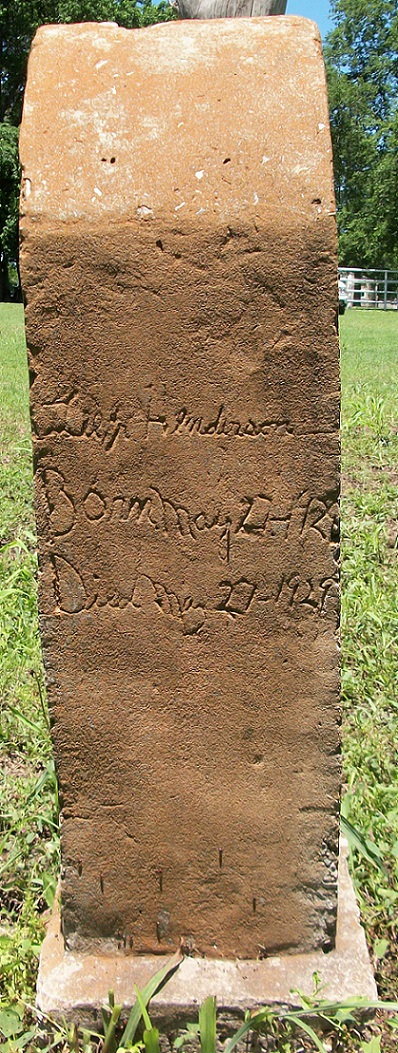 Henderson
Born May 27-192
Died May 27-1929